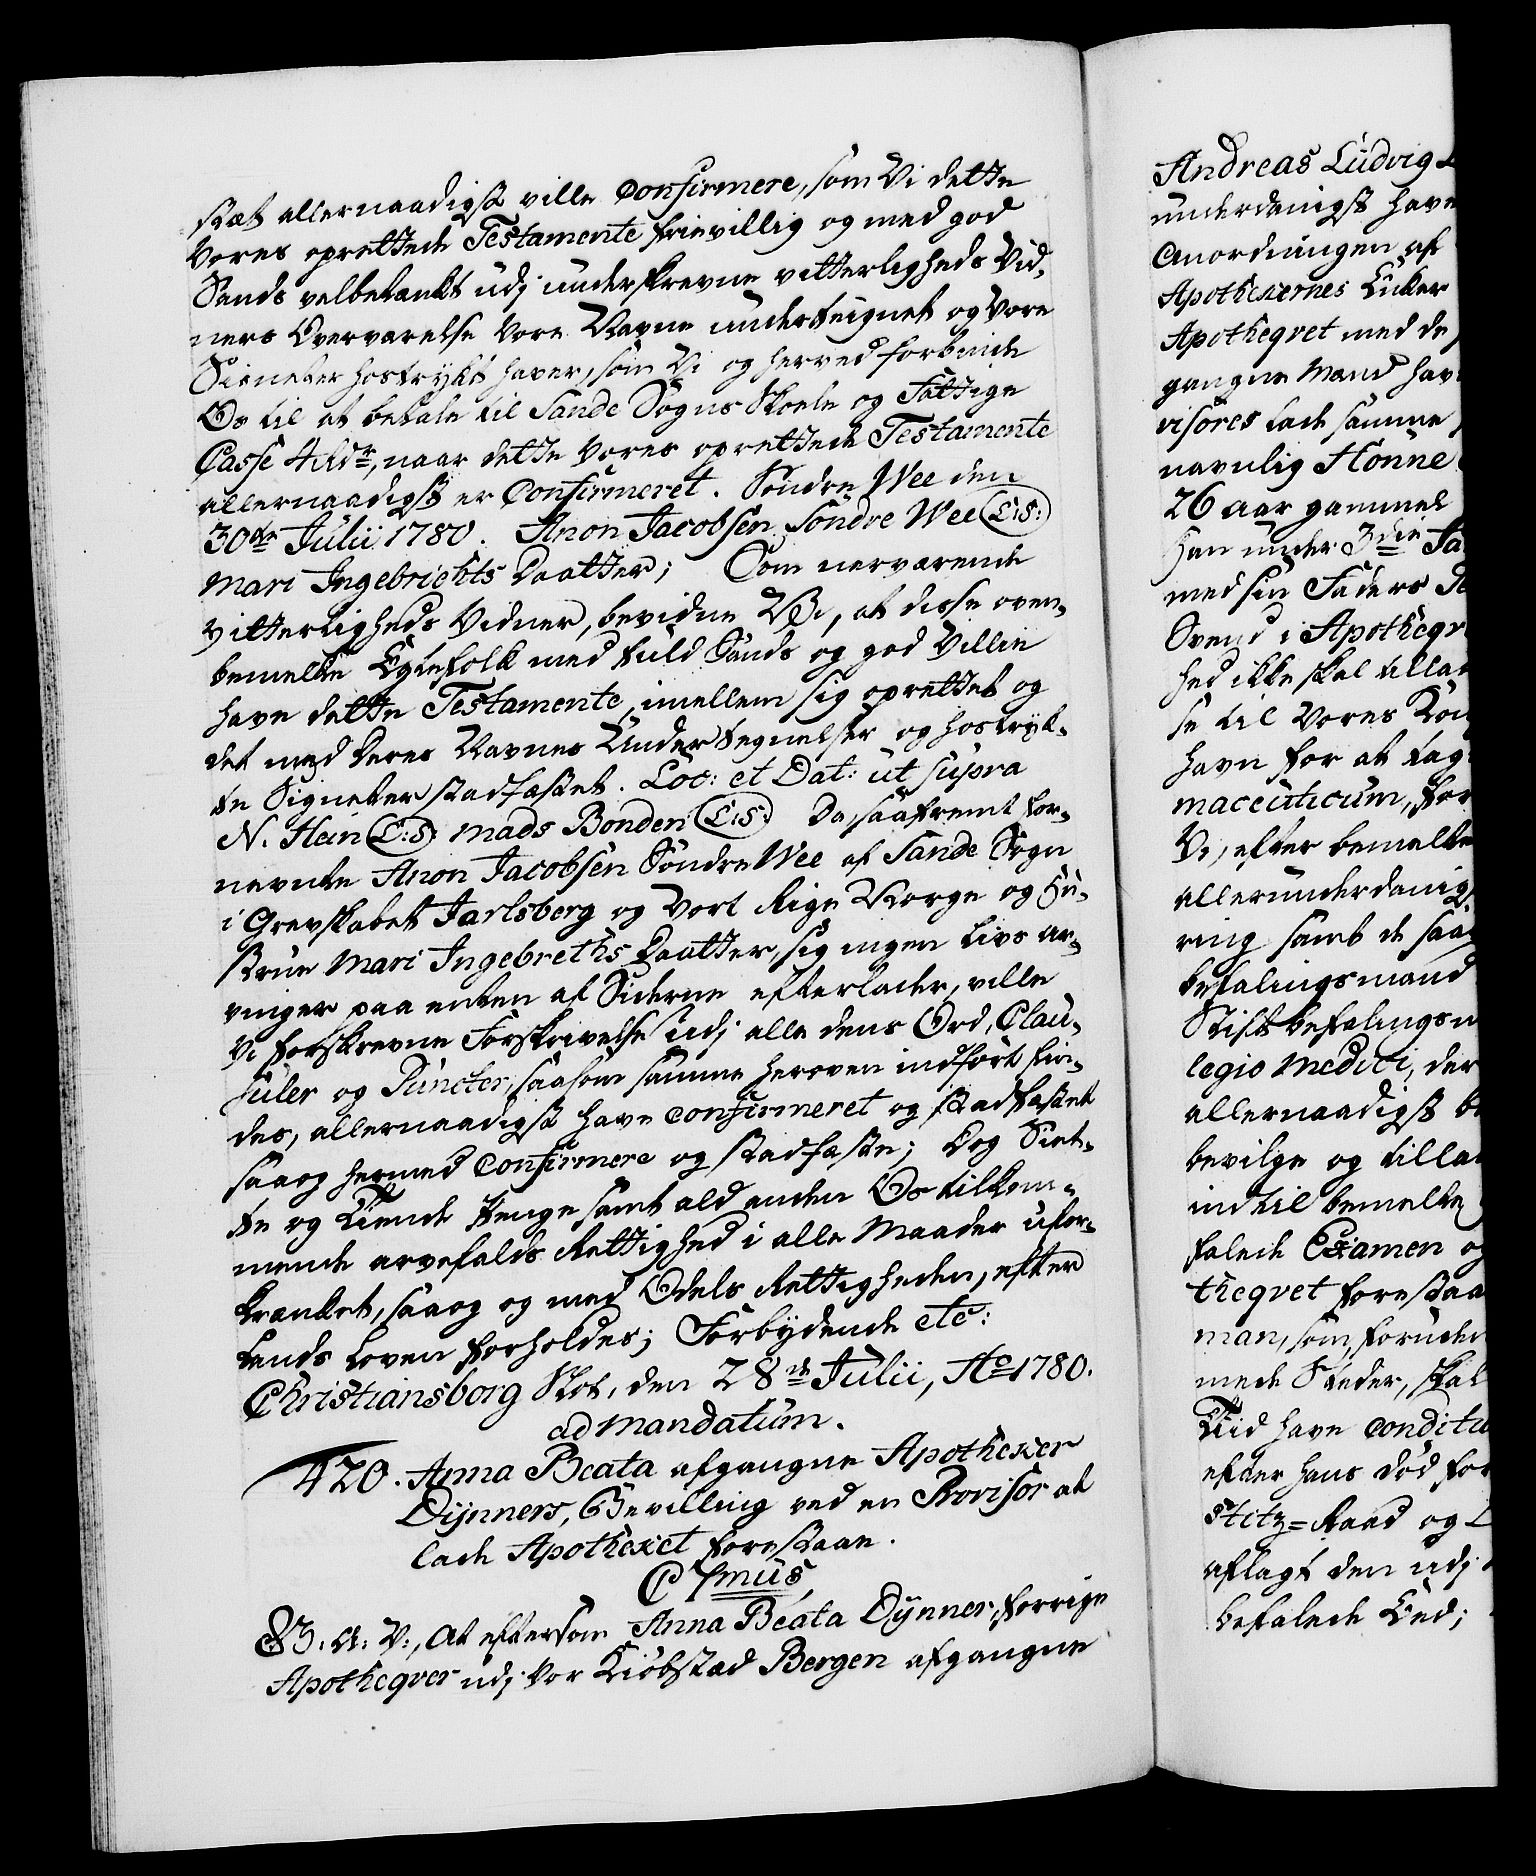 stæt allernaadigst ville Confirmere, som Vi dette
Vores oprettede Testamente frievillig og med god
Sands velbetænkt udj underskrevne vitterligheds Vid-
ners Overværelse Vore Navne underteignet og Vore
Signeter hostrykt haver, som Vi og herved forbinde
Os til at betale til Sande Sogns Skoele og Fattige
Casse 4 rdr, naar dette Vores oprettede Testamente
allernaadigst er Confirmeret. Søndre Wee den
30te Julii 1780. Anon Jacobsen Søndre Wee (L:S:)
Mari Ingebrichts Daatter; Som nærværende
Vitterligheds Vidner, bevidne Vi, at disse oven-
bemelte Egtefolk med fuld Sands og god Villie
have dette Testamente imellem sig oprettet og
det med deres Navnes Undertegnelser og hostryk-
te Signeter stadfæstet. Loc: et Dat: ut supra
N. Hein (L:S:) Mads Bonden (L:S:) Da, saafremt for-
nævnte Anon Jacobsen Søndre Wee af Sande Sogn
i Grevskabet Jarlsberg og Vort Rige Norge og Hu-
strue Mari Ingebreths Daatter, sig ingen livs ar-
vinger paa enten af Siderne efterlader, ville
Vi forskrevne Forskrivelse udj alle dens Ord, Clau-
suler og Puncter, saasom samme heroven indført fin-
des, allernaadigst have confirmeret og stadfæstet
saaog hermed Confirmere og stadfæste; Dog Siet-
te og Tiende Penge samt ald anden Os tilkom-
mende arvefalds Rettighed i alle Maader ufor-
krænket, saaog og med Odels Rettigheden, efter
Lands Loven forholdes; Forbydende etc:
Christiansborg Slot, den 28de Julii, Ao 1780.
ad mandatum.
420. Anna Beata afgangne Apotheker
Dynners, Bevilling ved en Provisor at
lade Apotheket forestaae.
C 7mus,
G. A. V:, At eftersom Anna Beata Dynner, forrige
Apotheqver udj Vor Kiøbstad Bergen afgangne
Andreas Ludvig
underdanigst have
Anordningen af
Apothekernes Enker
Apotheqvet med de
gangne Mand hav
visores lade samme
navnlig Hønne
26 aar gammel
Han under 3die Ja
med sin Faders
Svend i Apotheqv
hed ikke skal tillad
se til Vores Kon
havn for at tag
maceuticum, for
Vi, efter bemelte
allerunderdanigst
ring samt de saa
befalingsmand
Stiftbefalingsm
legio Medici, der
allernaadigst be
bevilge og tillad
indtil bemelte
falede Examen og
theqvet forestaa
man, som, foruden
mede Steder, skal
Tiid have conditio
efter hans død for
stitz=Raad og L
aflagt den udj
befalede Eed;